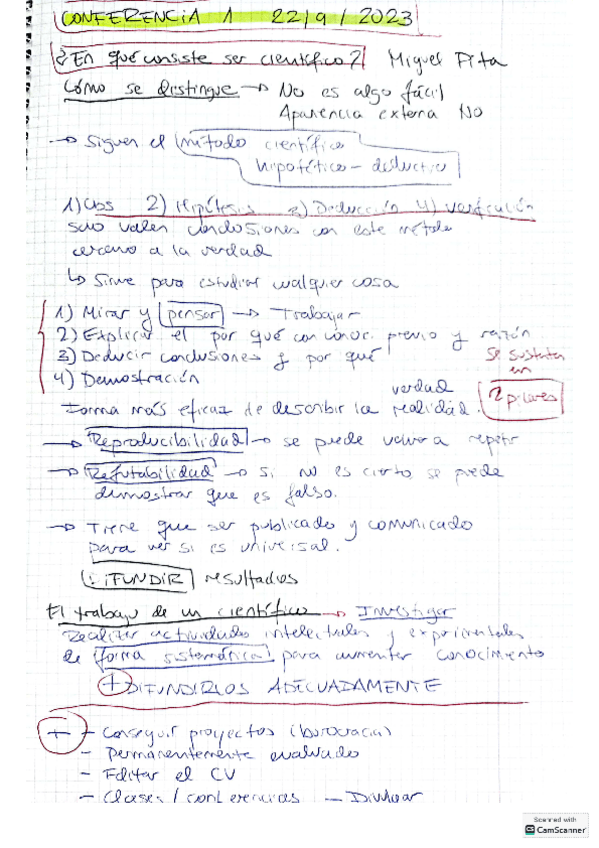 CONFERENCIA 1 22/9/2023
¿En qué consiste ser científico? Miguel Pita
Cómo se distingue → No es algo fácil
Aparencia externa NO
→ Siguen el método científico
hipotético-deductivo
1) Obs 2) Hipótesis 3) Deducción 4) verificación
solo valen conclusiones con este método
cercano a la verdad
↳ Sirve para estudiar cualquier cosa
1) Mirar y pensar → Trabajar
2) Explicar el por qué con conoc. previo y razón
3) Deducir conclusiones y por qué
Se sustenta
en
4) Demostración
2 pilares
verdad
Forma más eficaz de describir la realidad.
→ Reproducibilidad → se puede volver a repetir
→ Refutabilidad → si no es cierto se puede
demostrar que es falso.
→ Tiene que ser publicado y comunicado
para ver si es universal.
DIFUNDIR resultados
El trabajo de un científico → Investigar
Realizar actividades intelectuales y experimentales
de forma sistemática para aumentar conocimiento
+ DIFUNDIRLOS ADECUADAMENTE
+ - Conseguir proyectos (burocracia)
- Permanentemente evaluado
- Editar el CV
- Clases / conferencias - Divulgar
Scanned with
CamScanner